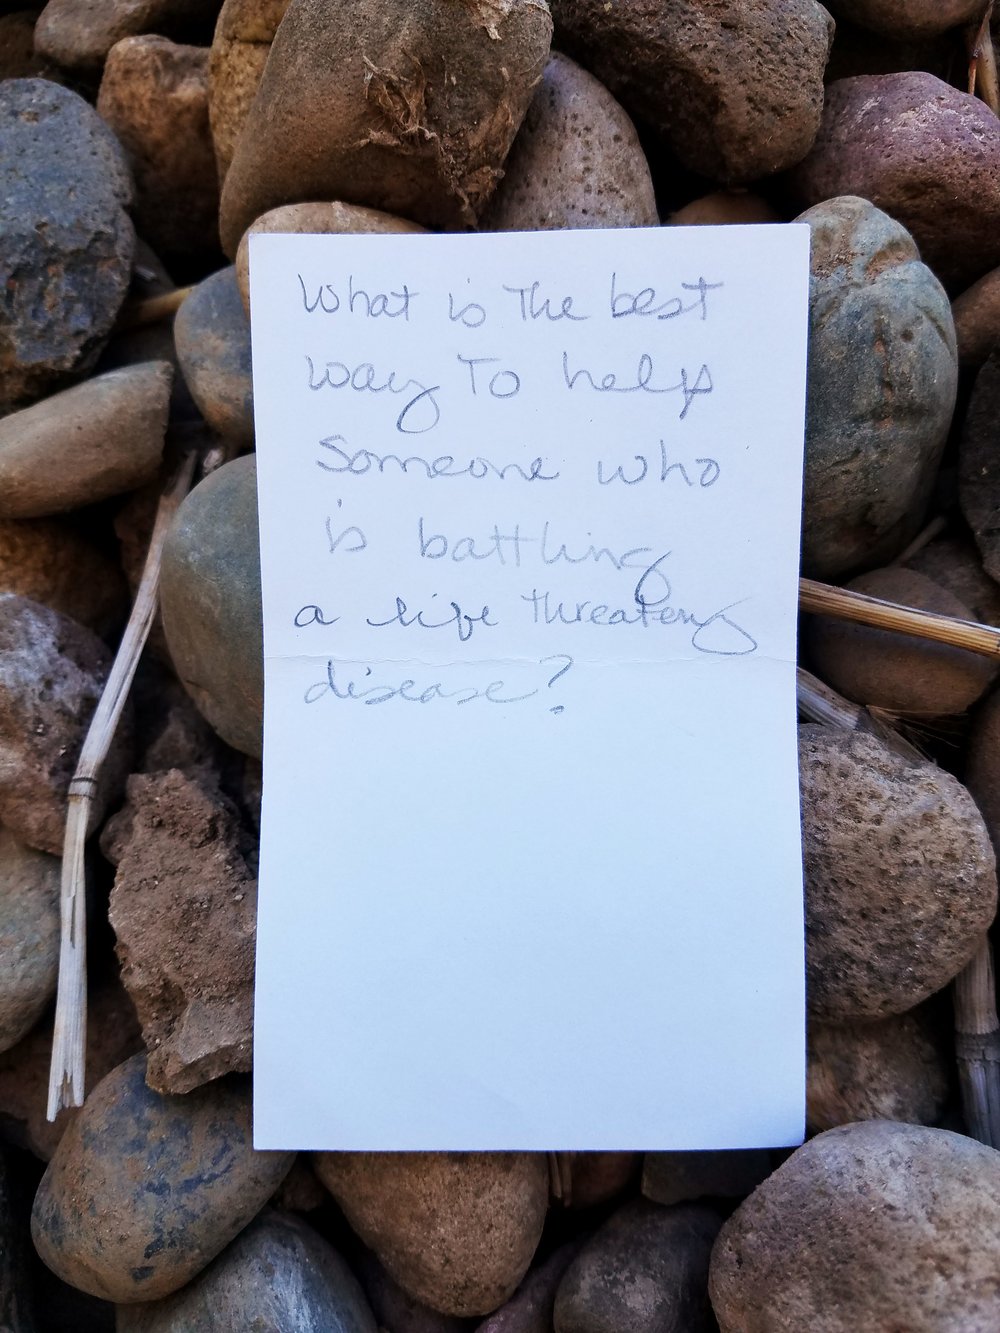 What is the best
way to help
someone who
is battling
a life threateng
disease?